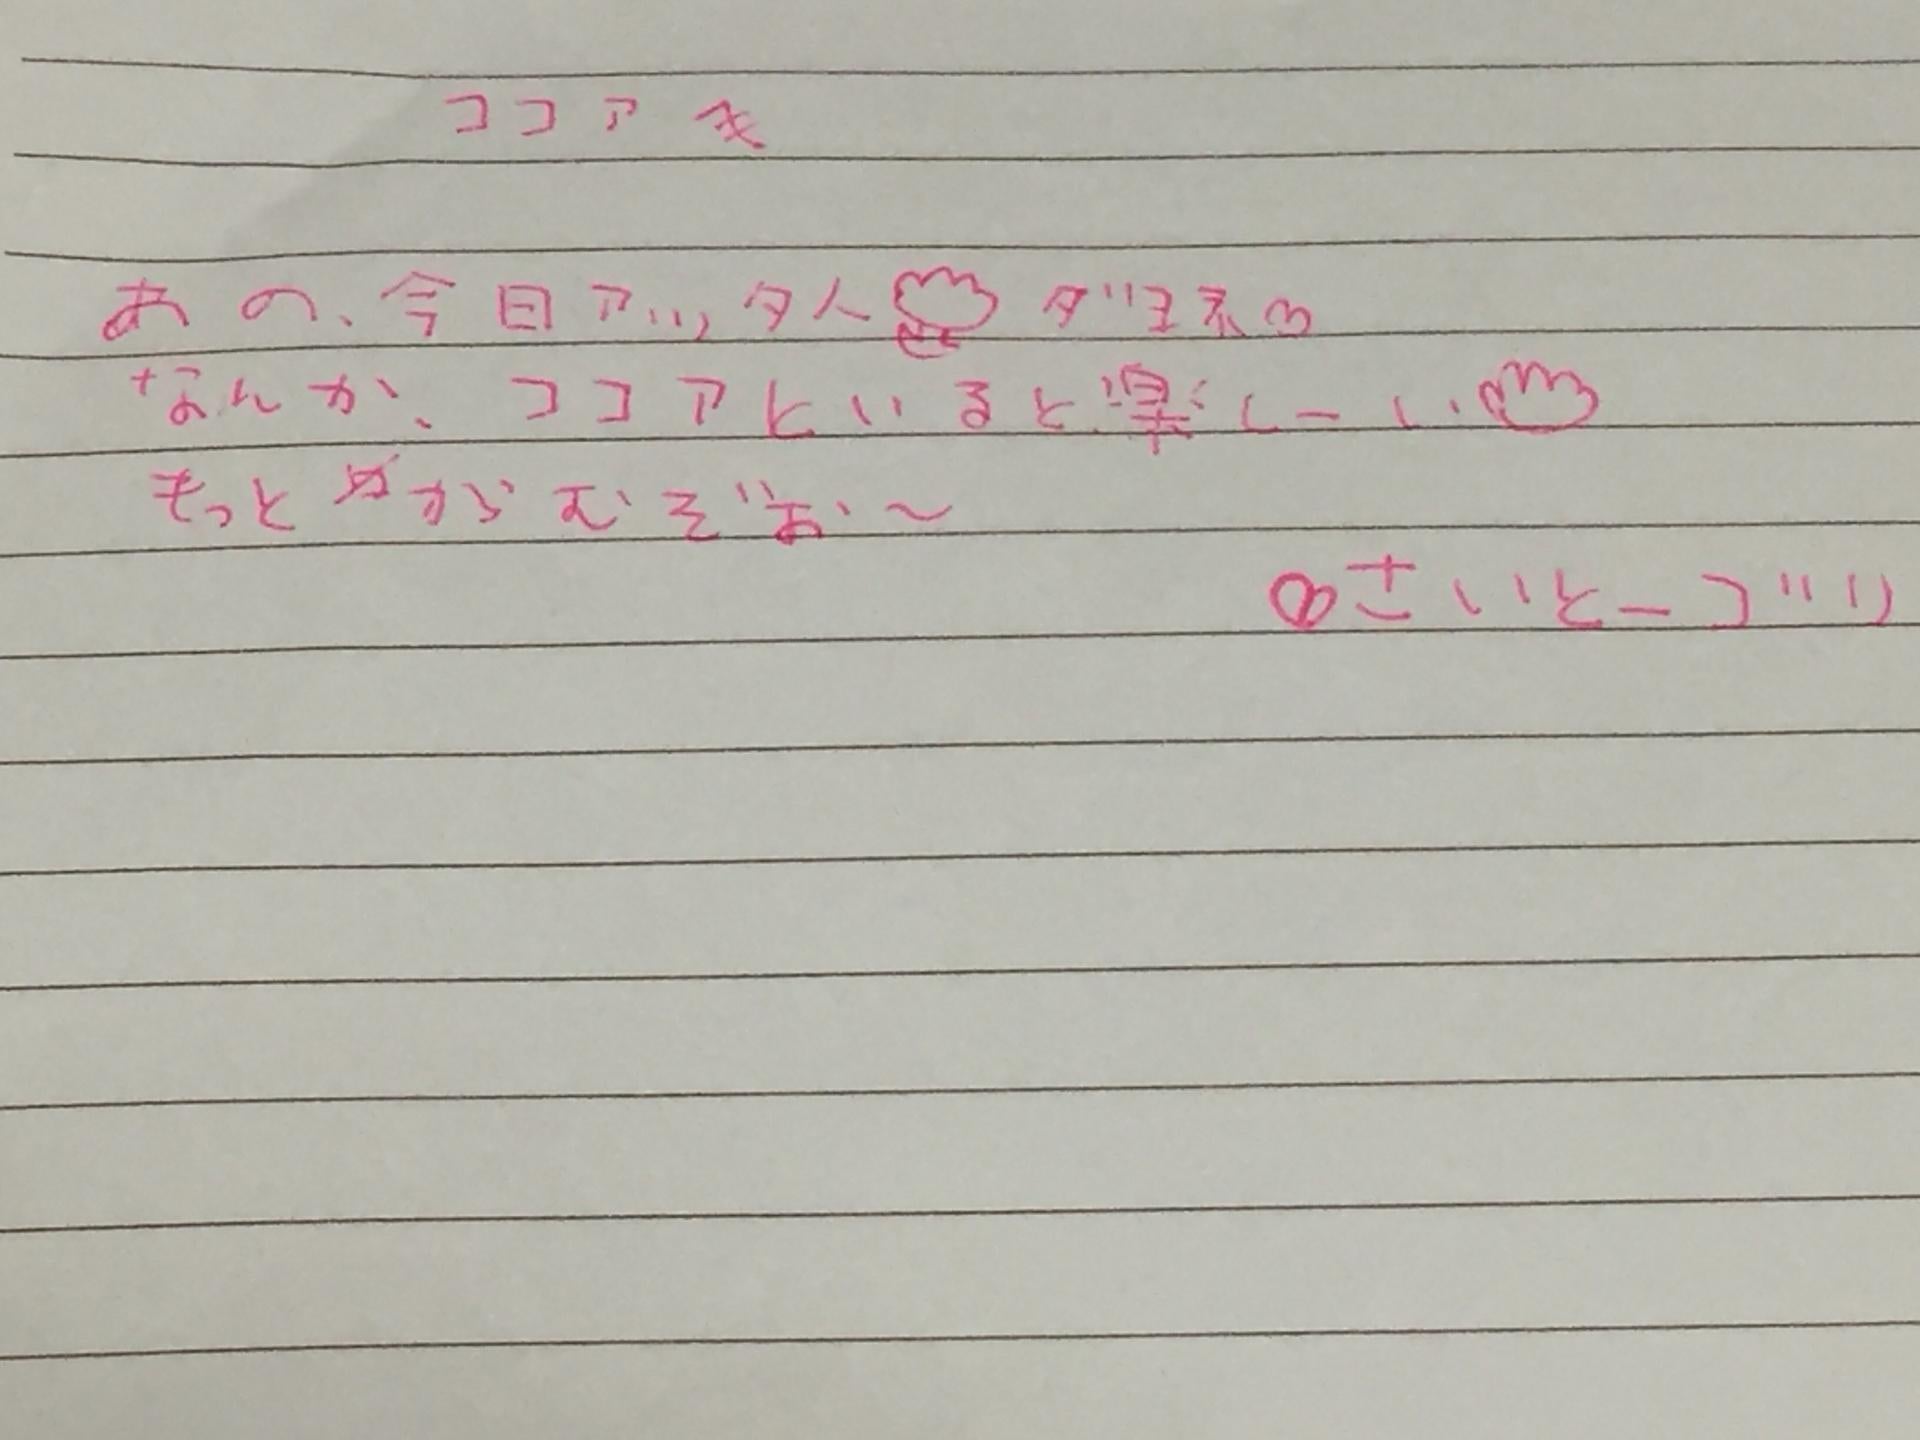 ココアへ
あの、今日アッタ人ダヨネ
なんか、ココアといると楽しーい
もっとからむぞお〜
さいとーゴリ